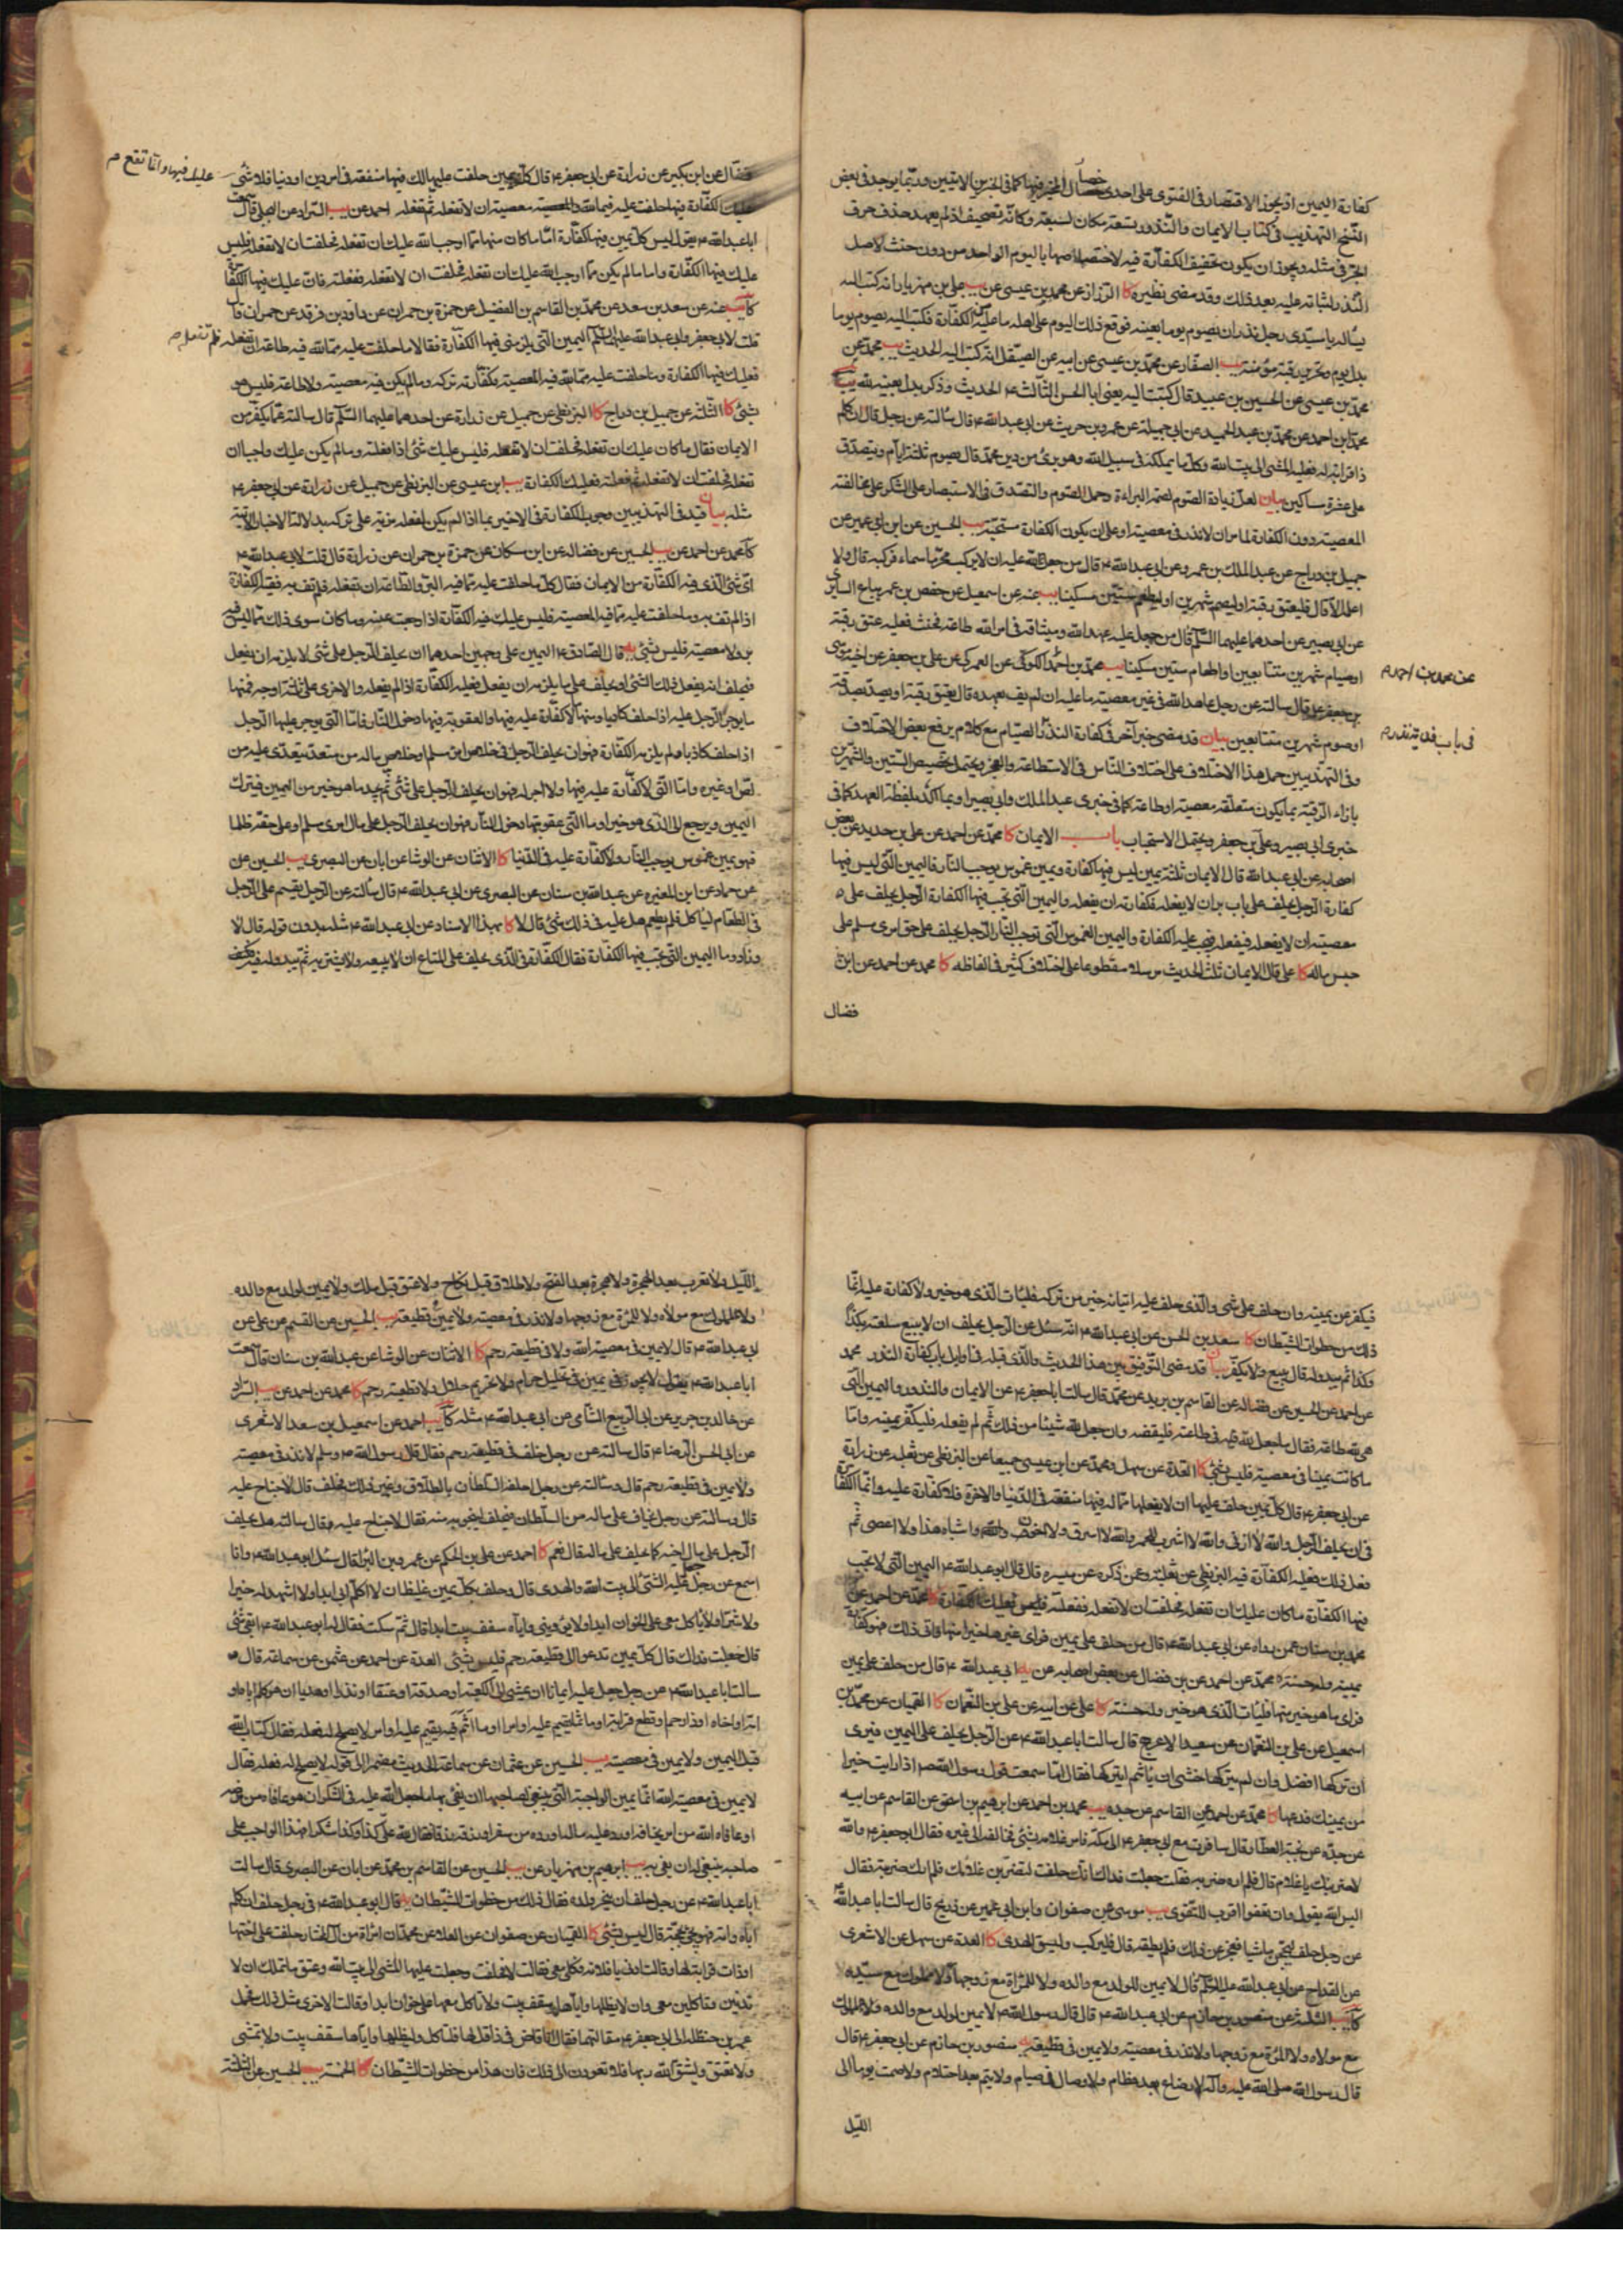 كفارة اليمين اذ يجوز الاقتصار في الفتوى على احدى خصال المخير فيها كما في الخبرين الاتيين وربما يوجد في بعض
النسخ التهذيب في كتاب الايمان والنذور وبسبعة مكان لسبعة وكانه تصحيف اذ لم يعهد حذف حرف
الجر في مثله ويجوز ان يكون تخفيف الكفارة فيه لاختصاصها باليوم الواحد من دون حنث لاصل
النذر لثباته عليه بعد ذلك وقد مضى نظيره كا الرزاز عن محمد بن عيسى عن يب علي بن مهزيار انه كتب اليه
يساله يا سيدي رجل نذر ان يصوم يوما بعينه فوقع ذلك اليوم على اهله ما عليه من الكفارة فكتب اليه يصوم يوما
بدل يوم وتحرير رقبة مؤمنة يب الصفار عن محمد بن عيسى عن ابيه عن الصيقل انه كتب اليه الحديث يب محمد عن
محمد بن عيسى عن الحسين بن عبيد قال كتبت اليه يعني ابا الحسن الثالث ع الحديث وذكر بدل بعينه لله
محمد بن احمد عن محمد بن عبد الحميد عن ابي جميلة عن عمرو بن حريث عن ابي عبد الله ع قال سالته عن رجل قال ان كلم
ذا قرابة له فعليه المشي الى بيت الله وكل ما يملكه في سبيل الله وهو بريء من دين محمد قال يصوم ثلثة ايام ويتصدق
على عشرة مساكين بيان لعل زيادة الصوم لضم البراءة وحمل الصوم والتصدق في الاستبصار على الشكر على مخالفته
المعصية دون الكفارة لما مر ان لا نذر في معصية او على ان يكون الكفارة مستحبة يب الحسين عن ابن ابي عمير عن
جميل بن دراج عن عبد الملك بن عمرو عن ابي عبد الله ع قال من جعل لله عليه ان لا يركب محرما سماه فركبه قال ولا
اعلمه الا قال فليعتق رقبة او ليصم شهرين او ليطعم ستين مسكينا يب عنه عن اسمعيل عن حفص بن عمر بياع السابري
عن ابي بصير عن احدهما عليهما السلام قال من جعل عليه عهد الله وميثاقه في امر لله طاعة فحنث فعليه عتق رقبة
او صيام شهرين متتابعين او اطعام ستين مسكينا يب محمد بن احمد الكوكبي عن العمركي عن علي بن جعفر عن اخيه موسى
عن محمد بن احمد م
بن جعفر ع قال سالته عن رجل عاهد الله في غير معصية ما عليه ان لم يف بعهده قال يعتق رقبة او يصدق بصدقة
او صوم شهرين متتابعين بيان قد مضى خبر آخر في كفارة النذر الصيام مع كلام يرفع بعض الاختلاف
وفي التهذيبين حمل هذا الاختلاف على اختلاف الناس في الاستطاعة والعجز ويحتمل تخصيص الستين والشهرين
بازاء الرقبة بما يكون متعلقه معصية او طاعة كما في خبري عبد الملك وابي بصير او بما اكد بلفظة العهد كما في
خبري ابي بصير وعلي بن جعفر ويحتمل الاستحباب باب الايمان كا محمد عن احمد عن علي بن حديد عن بعض
اصحابه عن ابي عبد الله قال الايمان ثلثة يمين ليس فيها كفارة ويمين غموس يوجب النار فاليمين التي ليس فيها
كفارة الرجل يحلف على باب بر ان لا يفعله فكفارته ان يفعله واليمين التي تجب فيها الكفارة الرجل يحلف على
معصية ان لا يفعله فيفعله فيجب عليه الكفارة واليمين الغموس التي توجب النار الرجل يحلف على حق امرئ مسلم على
حبس ماله كا علي قال الايمان ثلث الحديث مرسلا مقطوعا على اختلاف كثير في الفاظه كا محمد عن احمد عن ابن
فضال
فضال عن ابن بكير عن زرارة عن ابي جعفر ع قال كل يمين حلفت عليها لك فيها منفعة في امر دين او دنيا فلا شيء
عليك فيها وانما تقع م
عليك الكفارة فيها حلفت عليه فيما لله معصية ان لا تفعله ثم تفعله احمد عن يب السراد عن قال سمعت
ابا عبد الله ع يقول ليس كل يمين فيها كفارة اما ما كان منها مما اوجب الله عليك ان تفعله فحلفت ان لا تفعله فليس
عليك فيها الكفارة واما ما لم يكن مما اوجب الله عليك ان تفعله فحلفت ان لا تفعله ففعلته فان عليك فيها الكفارة
كا يب عنه عن سعد بن سعد عن محمد بن القاسم بن الفضيل عن حمزة بن حمران عن داود بن فرقد عن حمران قال
قلت لابي جعفر وابي عبد الله عليهما السلام اليمين التي يلزمني فيها الكفارة فقالا ما حلفت عليه مما لله فيه طاعة ان تفعله فلم تفعله
فعليك فيها الكفارة وما حلفت عليه مما لله فيه المعصية فكفارته تركه وما لم يكن فيه معصية ولا طاعة فليس هو
بشيء كا الثلثة عن جميل بن دراج كا البزنطي عن جميل عن زرارة عن احدهما عليهما السلام قال سالته عما يكفر من
الايمان فقال ما كان عليك ان تفعله فحلفت ان لا تفعله فليس عليك شيء اذا فعلته وما لم يكن عليك واجبا ان
تفعله فحلفت ان لا تفعله ثم فعلته فعليك الكفارة يب ابن عيسى عن البزنطي عن جميل عن زرارة عن ابي جعفر ع
مثله بيان قيد في التهذيبين وجوب الكفارة في الاخير بما اذا لم يكن لفعله مزية على تركه بدلالة الاخبار الاتية
كا محمد عن احمد عن يب الحسين عن فضالة عن ابن مسكان عن حمزة بن حمران عن زرارة قال قلت لابي عبد الله ع
اي شيء الذي فيه الكفارة من الايمان فقال كل ما حلفت عليه مما فيه البر والطاعة ان تفعله فلم تف به فقيه الكفارة
اذا لم تف به وما حلفت عليه مما فيه المعصية فليس عليك فيه الكفارة اذا رجعت عنه وما كان سوى ذلك مما ليس فيه
بر ولا معصية فليس بشيء يه قال الصادق ع اليمين على وجهين احدهما ان يحلف الرجل على شيء لا يلزمه ان يفعل
فيحلف انه يفعل ذلك الشيء او يحلف على ما يلزمه ان يفعل فعليه الكفارة اذا لم يفعله والاخرى على ثلثة اوجه فمنها
ما يوجر الرجل عليه اذا حلف كاذبا ومنها لا كفارة عليه فيها ولا اجر ومنها لا كفارة عليه فيها والعقوبة فيها دخول النار فاما التي يوجر عليها الرجل
اذا حلف كاذبا ولم يلزمه الكفارة فهو ان يحلف الرجل في خلاص امرئ مسلم او خلاص ماله من متعد يتعدى عليه من
لص او غيره واما التي لا كفارة عليه فيها ولا اجر له فهو ان يحلف الرجل على شيء ثم يجد ما هو خير من اليمين فيترك
اليمين ويرجع الى الذي هو خير واما التي عقوبتها دخول النار فهو ان يحلف الرجل على مال امرئ مسلم او على حقه ظلما
فهو يمين غموس يوجب النار ولا كفارة عليه في الدنيا كا الاثنان عن الوشا عن ابان عن البصري يب الحسين عن
عن حماد عن ابن المغيرة عن عبد الله بن سنان عن البصري عن ابي عبد الله ع قال سالته عن الرجل يقسم على الرجل
في الطعام لياكل فلم يطعم هل عليه في ذلك شيء قال لا كا بهذا الاسناد عن ابي عبد الله ع مثله بدون قوله قال لا
وزاد وما اليمين التي تجب فيها الكفارة فقال الكفارة في الذي يحلف على المتاع ان لا يبيعه ولا يشتريه ثم يبدو له فيه
فيكفر عن يمينه وان حلف على شيء والذي حلف عليه اتيانه خير من تركه فليات الذي هو خير ولا كفارة عليه انما
ذلك من خطوات الشيطان كا سعد بن الحسن عن ابي عبد الله ع انه سئل عن الرجل يحلف ان لا يبيع سلعته بكذا
وكذا ثم يبدو له قال يبيع ولا يكفر بيان قد مضى التوفيق بين هذا الحديث والذي قبله في اوايل باب كفارة النذر محمد
عن احمد عن الحسين عن فضالة عن القاسم بن بريد عن محمد قال سالت ابا جعفر ع عن الايمان والنذور واليمين التي
هي لله طاعة فقال ما جعل لله فيه في طاعة فليقضه وان جعل لله شيئا من ذلك ثم لم يفعله فليكفر يمينه واما
ما كانت يمينا في معصية فليس بشيء كا العدة عن سهل ومحمد عن ابن عيسى جميعا عن البزنطي عن ثعلبة عن زرارة
عن ابي جعفر ع قال كل يمين حلف عليها ان لا يفعلها مما له فيها منفعة في الدنيا والاخرة فلا كفارة عليه وانما الكفارة
في ان يحلف الرجل والله لا ازني والله لا اشرب الخمر والله لا اسرق ولا اخون والله واشباه هذا ولا اعصي ثم
فعل ذلك فعليه الكفارة فيه البزنطي عن ثعلبة وعمن ذكره عن ميسرة قال قال ابو عبد الله ع اليمين التي لا تجب
فيها الكفارة ما كان عليك ان تفعله فحلفت ان لا تفعله ففعلته فليس عليك الكفارة كا محمد عن احمد عن
محمد بن سنان عمن رواه عن ابي عبد الله ع قال من حلف على يمين فراى غيرها خيرا منها فاتى ذلك فهو كفارة
يمينه وله حسنة محمد عن احمد عن بن فضال عن بعض اصحابه عن يه ابي عبد الله ع قال من حلف على يمين
فراى ما هو خير منها فليات الذي هو خير وله حسنة كا علي عن ابيه عن علي بن النعمان كا القميان عن محمد بن
اسمعيل عن علي بن النعمان عن سعيد الاعرج قال سالت ابا عبد الله ع عن الرجل يحلف على اليمين فيرى
ان تركها افضل وان لم يتركها خشي ان ياثم ايتركها فقال اما سمعت قول رسول الله ص اذا رايت خيرا
من يمينك فدعها كا محمد عن احمد عن القاسم عن جده يب محمد بن احمد عن ابرهيم بن اسحق عن القاسم عن ابيه
عن جده عن نجية العطار قال سافرت مع ابي جعفر ع الى مكة فامر غلامه بشيء فخالفه الى غيره فقال ابو جعفر ع والله
لاضربنك يا غلام قال فلم اره ضربه فقلت جعلت فداك انك حلفت لتضربن غلامك فلم ارك ضربته فقال
اليس الله يقول وان تعفوا اقرب للتقوى يب موسى عن صفوان وابن ابي عمير عن ذريح قال سالت ابا عبد الله ع
عن رجل حلف ليحجن ماشيا فعجز عن ذلك فلم يطقه قال فليركب وليسق الهدى كا العدة عن سهل عن الاشعري
عن القداح عن ابي عبد الله عليه السلام قال لا يمين للولد مع والده ولا للمراة مع زوجها ولا للمملوك مع سيده
كا يب الثلثة عن منصور بن حازم عن ابي عبد الله ع قال قال رسول الله ص لا يمين لولد مع والده ولا لمملوك
مع مولاه ولا للمرة مع زوجها ولا نذر في معصية ولا يمين في قطيعة يه منصور بن حازم عن ابي جعفر ع قال
قال رسول الله صلى الله عليه وآله لا رضاع بعد فطام ولا وصال في صيام ولا يتم بعد احتلام ولا صمت يوما الى
الليل
الليل ولا تعرب بعد الهجرة ولا هجرة بعد الفتح ولا طلاق قبل نكاح ولا عتق قبل ملك ولا يمين لولد مع والده
ولا لمملوك مع مولاه ولا للمرة مع زوجها ولا نذر في معصية ولا يمين في قطيعة يب الحسين عن القسم عن علي عن
ابي عبد الله ع قال لا يمين في معصية الله ولا في قطيعة رحم كا الاثنان عن الوشا عن عبد الله بن سنان قال سمعت
ابا عبد الله ع يقول لا يجوز يمين في تحليل حرام ولا تحريم حلال ولا قطيعة رحم كا محمد عن احمد عن يب السراد
عن خالد بن جرير عن ابي الربيع الشامي عن ابي عبد الله ع مثله كا يب احمد عن اسمعيل بن سعد الاشعري
عن ابي الحسن الرضا ع قال سالته عن رجل حلف في قطيعة رحم فقال قال رسول الله ص لا نذر في معصية
ولا يمين في قطيعة رحم قال وسالته عن رجل احلفه السلطان بالطلاق وغير ذلك فحلف قال لا جناح عليه
قال وسالته عن رجل يخاف على ماله من السلطان فيحلف لينجو به منه فقال لا جناح عليه وقال سالته هل يحلف
الرجل على مال اخيه كما يحلف على ماله قال نعم كا احمد عن علي بن الحكم عن عمرو بن البراء قال سئل ابو عبد الله ع وانا
اسمع عن رجل جعل عليه المشي الى بيت الله والهدى قال وحلف بكل يمين غليظ ان لا اكلم ابي ابدا ولا اشهد له خيرا
ولا شرا ولا ياكل معي على الخوان ابدا ولا يؤويني واياه سقف بيت ابدا قال ثم سكت فقال له ابو عبد الله ع ابقي شيء
قال جعلت فداك قال كل يمين تدعو الى قطيعة رحم فليس بشيء العدة عن احمد عن عثمن عن سماعة قال
سالت ابا عبد الله ع عن رجل جعل عليه ايمانا ان يمشي الى الكعبة او صدقة او عتقا او نذرا او هديا ان هو كلم اباه او
امه او اخاه او ذا رحم او قطع قرابة او ماثما يقيم عليه او امر لا يصلح له فعله فقال كتاب الله
قبل اليمين ولا يمين في معصية يب الحسين عن عثمان عن سماعة الحديث مضمرا الى قوله لا يصلح له فعله فقال
لا يمين في معصية الله انما يمين الواجبة التي ينبغي لصاحبها ان يفي بها ما جعل الله عليه في الشكر ان هو عافاه من مرضه
او عافاه الله من امر يخافه او رد عليه ماله او رده من سفر او رزقه رزقا فقال لله علي كذا وكذا شكرا فهذا الواجب على
صاحبه ينبغي له ان يفي به يب ابرهيم بن مهزيار عن يب الحسين عن القاسم بن محمد عن ابان عن البصري قال سالت
ابا عبد الله ع عن رجل حلف ان ينحر ولده فقال ذلك من خطوات الشيطان يه قال ابو عبد الله ع في رجل حلف ان كلم
اباه وامه فهو محرم بحجة قال ليس بشيء كا القميان عن صفوان عن العلا عن محمد ان امراة من آل المختار حلفت على اختها
او ذات قرابة لها وقالت ادني يا فلانة فكلي معي فقالت لا فحلفت وجعلت عليها المشي الى بيت الله وعتق ما تملك ان لا
تدنين وتاكلين معي وان لا يظلها واياها سقف بيت ولا تاكل معها على خوان ابدا وقالت الاخرى مثل ذلك فحمل
عمر بن حنظلة الى ابي جعفر ع مقالتهما فقال انا قاض في ذا قل لها فلتاكل وليظلها واياها سقف بيت ولا تمشي
ولا تعتق وليتق الله ربها فلا تعودن الى ذلك فان هذا من خطوات الشيطان كا الخمسة يب الحسين عن الثلثة